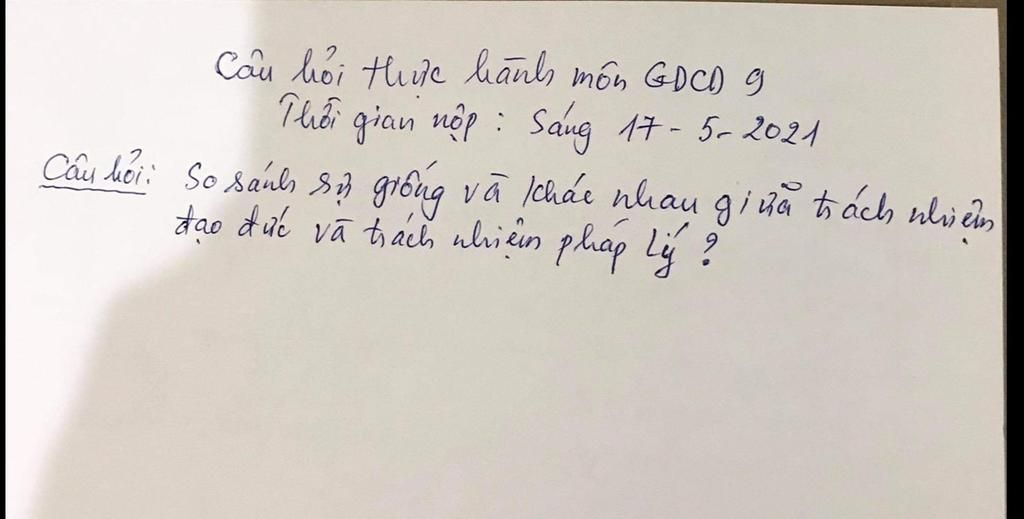 Câu hỏi thực hành môn GDCD 9
Thời gian nộp : Sáng 17 - 5 - 2021
Câu hỏi: So sánh sự giống và khác nhau giữa trách nhiệm
đạo đức và trách nhiệm pháp lý ?